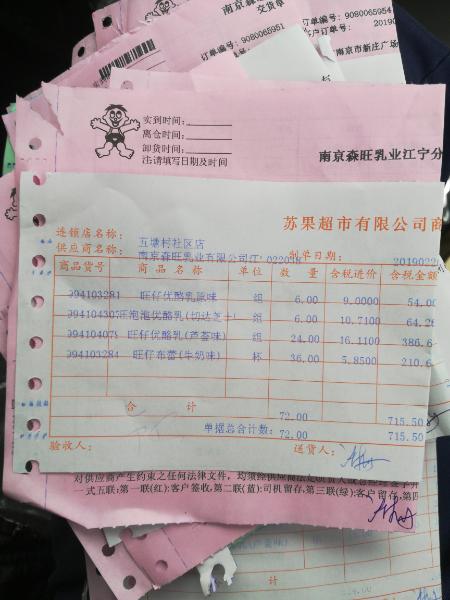 南京森旺
交货单
订单编号：9080065954
客户订单号：
201902
南京市新庄广场
订单编号：9080065951
实到时间：
离仓时间：
卸货时间：
注：请填写日期及时间
南京森旺乳业江宁分
苏果超市有限公司商
连锁店名称： 五塘村社区店
供应商名称： 南京森旺乳业有限公司江 022058 制单日期：
商品货号 商品名称 单位 数量 含税进价 含税金额
994103281 旺仔优酪乳原味 组 6.00 9.0000 54.00
994104307 旺泡泡优酪乳(切达芝士 组 6.00 10.7100 64.26
994104075 旺仔优酪乳(芦荟味) 组 24.00 16.1100 386.6
994103284 旺仔布蕾(牛奶味) 杯 36.00 5.8500 210.6
合计 72.00 715.50
单据总合计数： 72.00 715.50
验收人： 送货人：
对供应商产生约束之任何法律文件，均须经供应商法定
一式五联：第一联(红)：客户签收，第二联(蓝)：司机留存，第三联(绿)：客户留存，第四
计